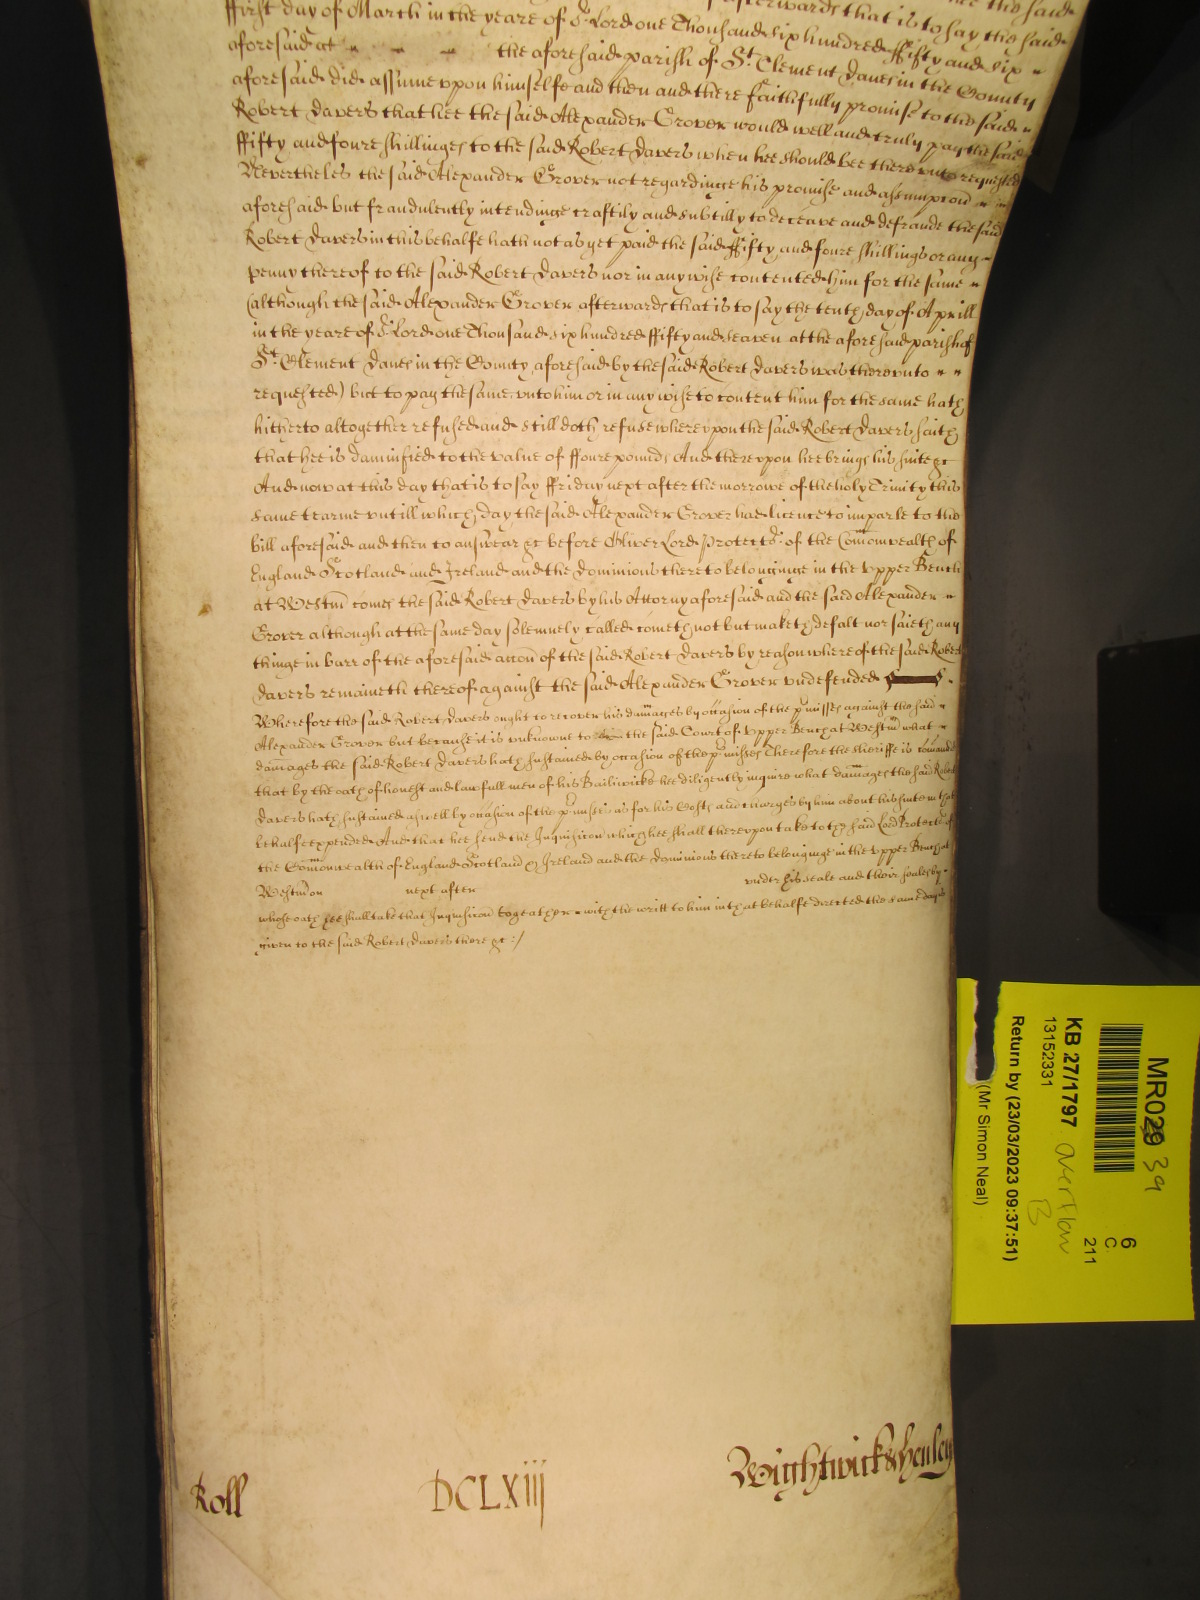 afterwards that is to say the said
ffirst day of March in the yeare of or Lord one Thousand six hundred ffifty and six
aforesaid at the aforesaid parish of St. Clement Danes in the County
aforesaid did assume vpon himselfe and then and there faithfully promise to the said
Robert Davers that hee the said Alexander Grover would well and truly pay the said
ffifty and foure shillinges to the said Robert Davers when hee should bee therevnto requested
Neverthelesse the said Alexander Grover not regardinge his promise and assumpcon
aforesaid but fraudulently intendinge craftily and subtilly to deceave and defraude the said
Robert Davers in this behalfe hath not as yet paid the said ffifty and foure shillings or any
penny thereof to the said Robert Davers nor in any wise contented him for the same
(although the said Alexander Grover afterwards that is to say the tenth day of Aprill
in the yeare of or Lord one Thousand six hundred ffifty and seaven at the aforesaid parish of
St. Clement Danes in the County aforesaid by the said Robert Davers was therevnto
requested) but to pay the same vnto him or in any wise to content him for the same hath
hitherto altogether refused and still doth refuse wherevpon the said Robert Davers saith
that hee is damnified to the value of ffoure pounds And therevpon hee brings his suite &c
And now at this day that is to say ffriday next after the morrowe of the holy Trinity this
same tearme vntill which day the said Alexander Grover had licence to imparle to the
bill aforesaid and then to answear &c before Oliver Lord Protector of the Comonwealth of
England Scotland and Ireland and the Dominions thereto belonginge in the vpper Bench
at Westm comes the said Robert Davers by his Attorny aforesaid and the said Alexander
Grover although at the same day solemnely called cometh not but maketh defalt nor saieth any
thinge in barr of the aforesaid accon of the said Robert Davers by reason whereof the said Robert
Davers remaineth thereof against the said Alexander Grover vndefended
Wherefore the said Robert Davers ought to recover his damages by occasion of the pmisses against the said
Alexander Grover but because it is vnknowne to the said Court of vpper Bench at Westm what
damages the said Robert Davers hath sustained by occasion of the pmisses Therefore the sheriffe is comanded
that by the oath of honest and lawfull men of his Bailiwicke hee diligently inquire what damages the said Robert
Davers hath sustained aswell by occasion of the pmisses as for his Costs and charges by him about his suite in that
behalfe expended And that hee send the Inquisicon which hee shall therevpon take to the said Lord Protector of
the Comonwealth of England Scotland & Ireland and the Dominions thereto belonginge in the vpper Bench at
Westm on next after vnder his seale and their seales by
whose oath hee shall take that Inquisicon togeather with the writt to him in that behalfe directed the same day is
given to the said Robert Davers there &c :/
Roll DCLXiij Wightwick & Henley
MR029 39
KB 27/1797 overflow B
13152331
Return by (23/03/2023 09:37:51)
(Mr Simon Neal)
6
C
211